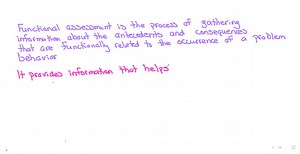 Functional assessment is the process of gathering
information about the antecedents and consequences
that are functionally related to the occurrence of a problem
behavior
It provides information that helps